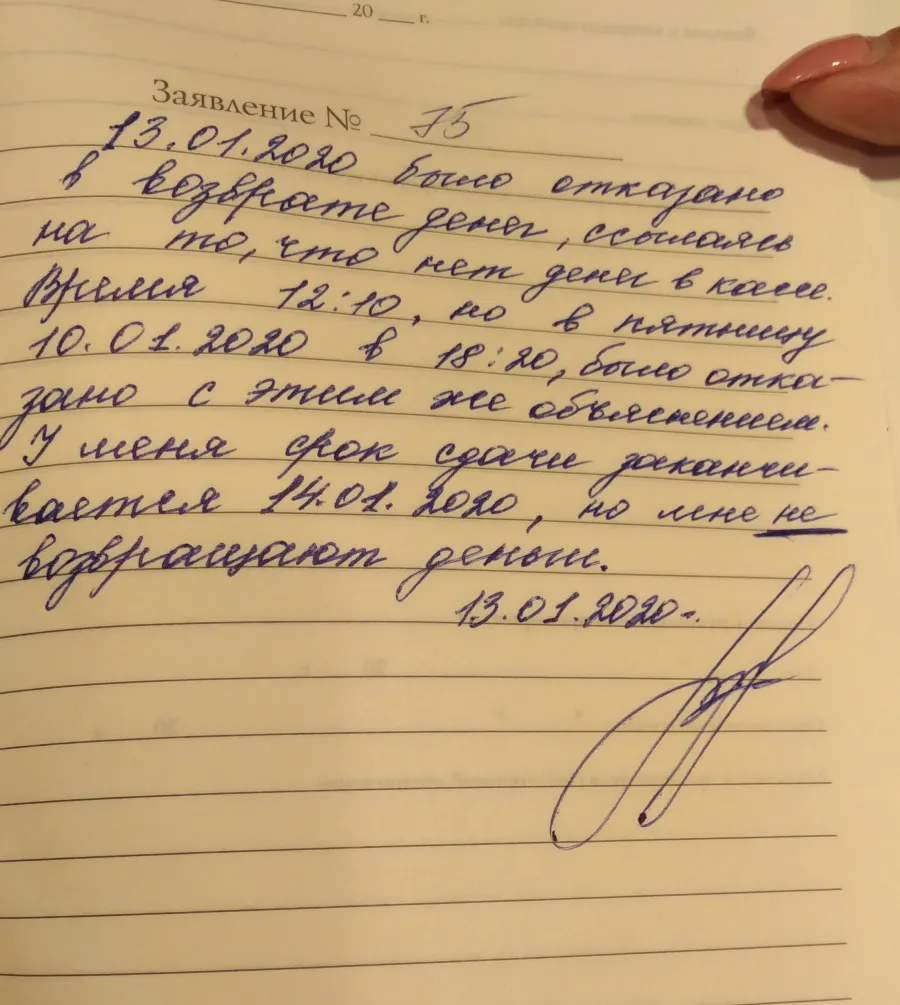 20 г.
Заявление № 75
13.01.2020 было отказано
в возврате денег, ссылаясь
на то, что нет денег в касе.
Время 12:10, но в пятницу
10.01.2020 в 18:20, было отка-
зано с этим же объяснением.
У меня срок сдачи заканчи-
вается 14.01.2020, но мне не
возвращают деньги.
13.01.2020г.